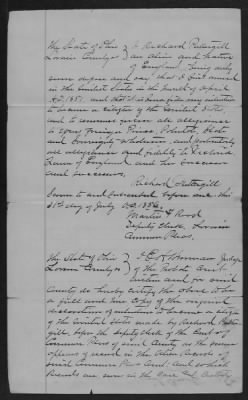 The State of Ohio } I Richard Pettergill
Lorain County ss } an alien and native
of England being duly
sworn depose and say that I first arrived
in the United States in the month of April
A.D. 1851, and that it is bona fide my intention
to become a citizen of the United States
and to renounce forever all allegiance
to every foreign Prince, Potentate, State
and Sovereignty whatsoever, and particularly
all allegiance and fidelity to Victoria
Queen of England and her successors
Richard Pettergill
Sworn to and subscribed before me this
31st day of July A.D. 1856.
Deputy Clerk, Lorain
Common Pleas.
The State of Ohio } Judge
Lorain County ss } of the Probate Court
within and for said
County do hereby certify the above to be
a full and true copy of the original
declaration of intention to become a citizen
of the United States made by Richard
before the deputy clerk of the Court of
Common Pleas of said County as the same
appears of record in the
said Common Pleas Court and which
Records are